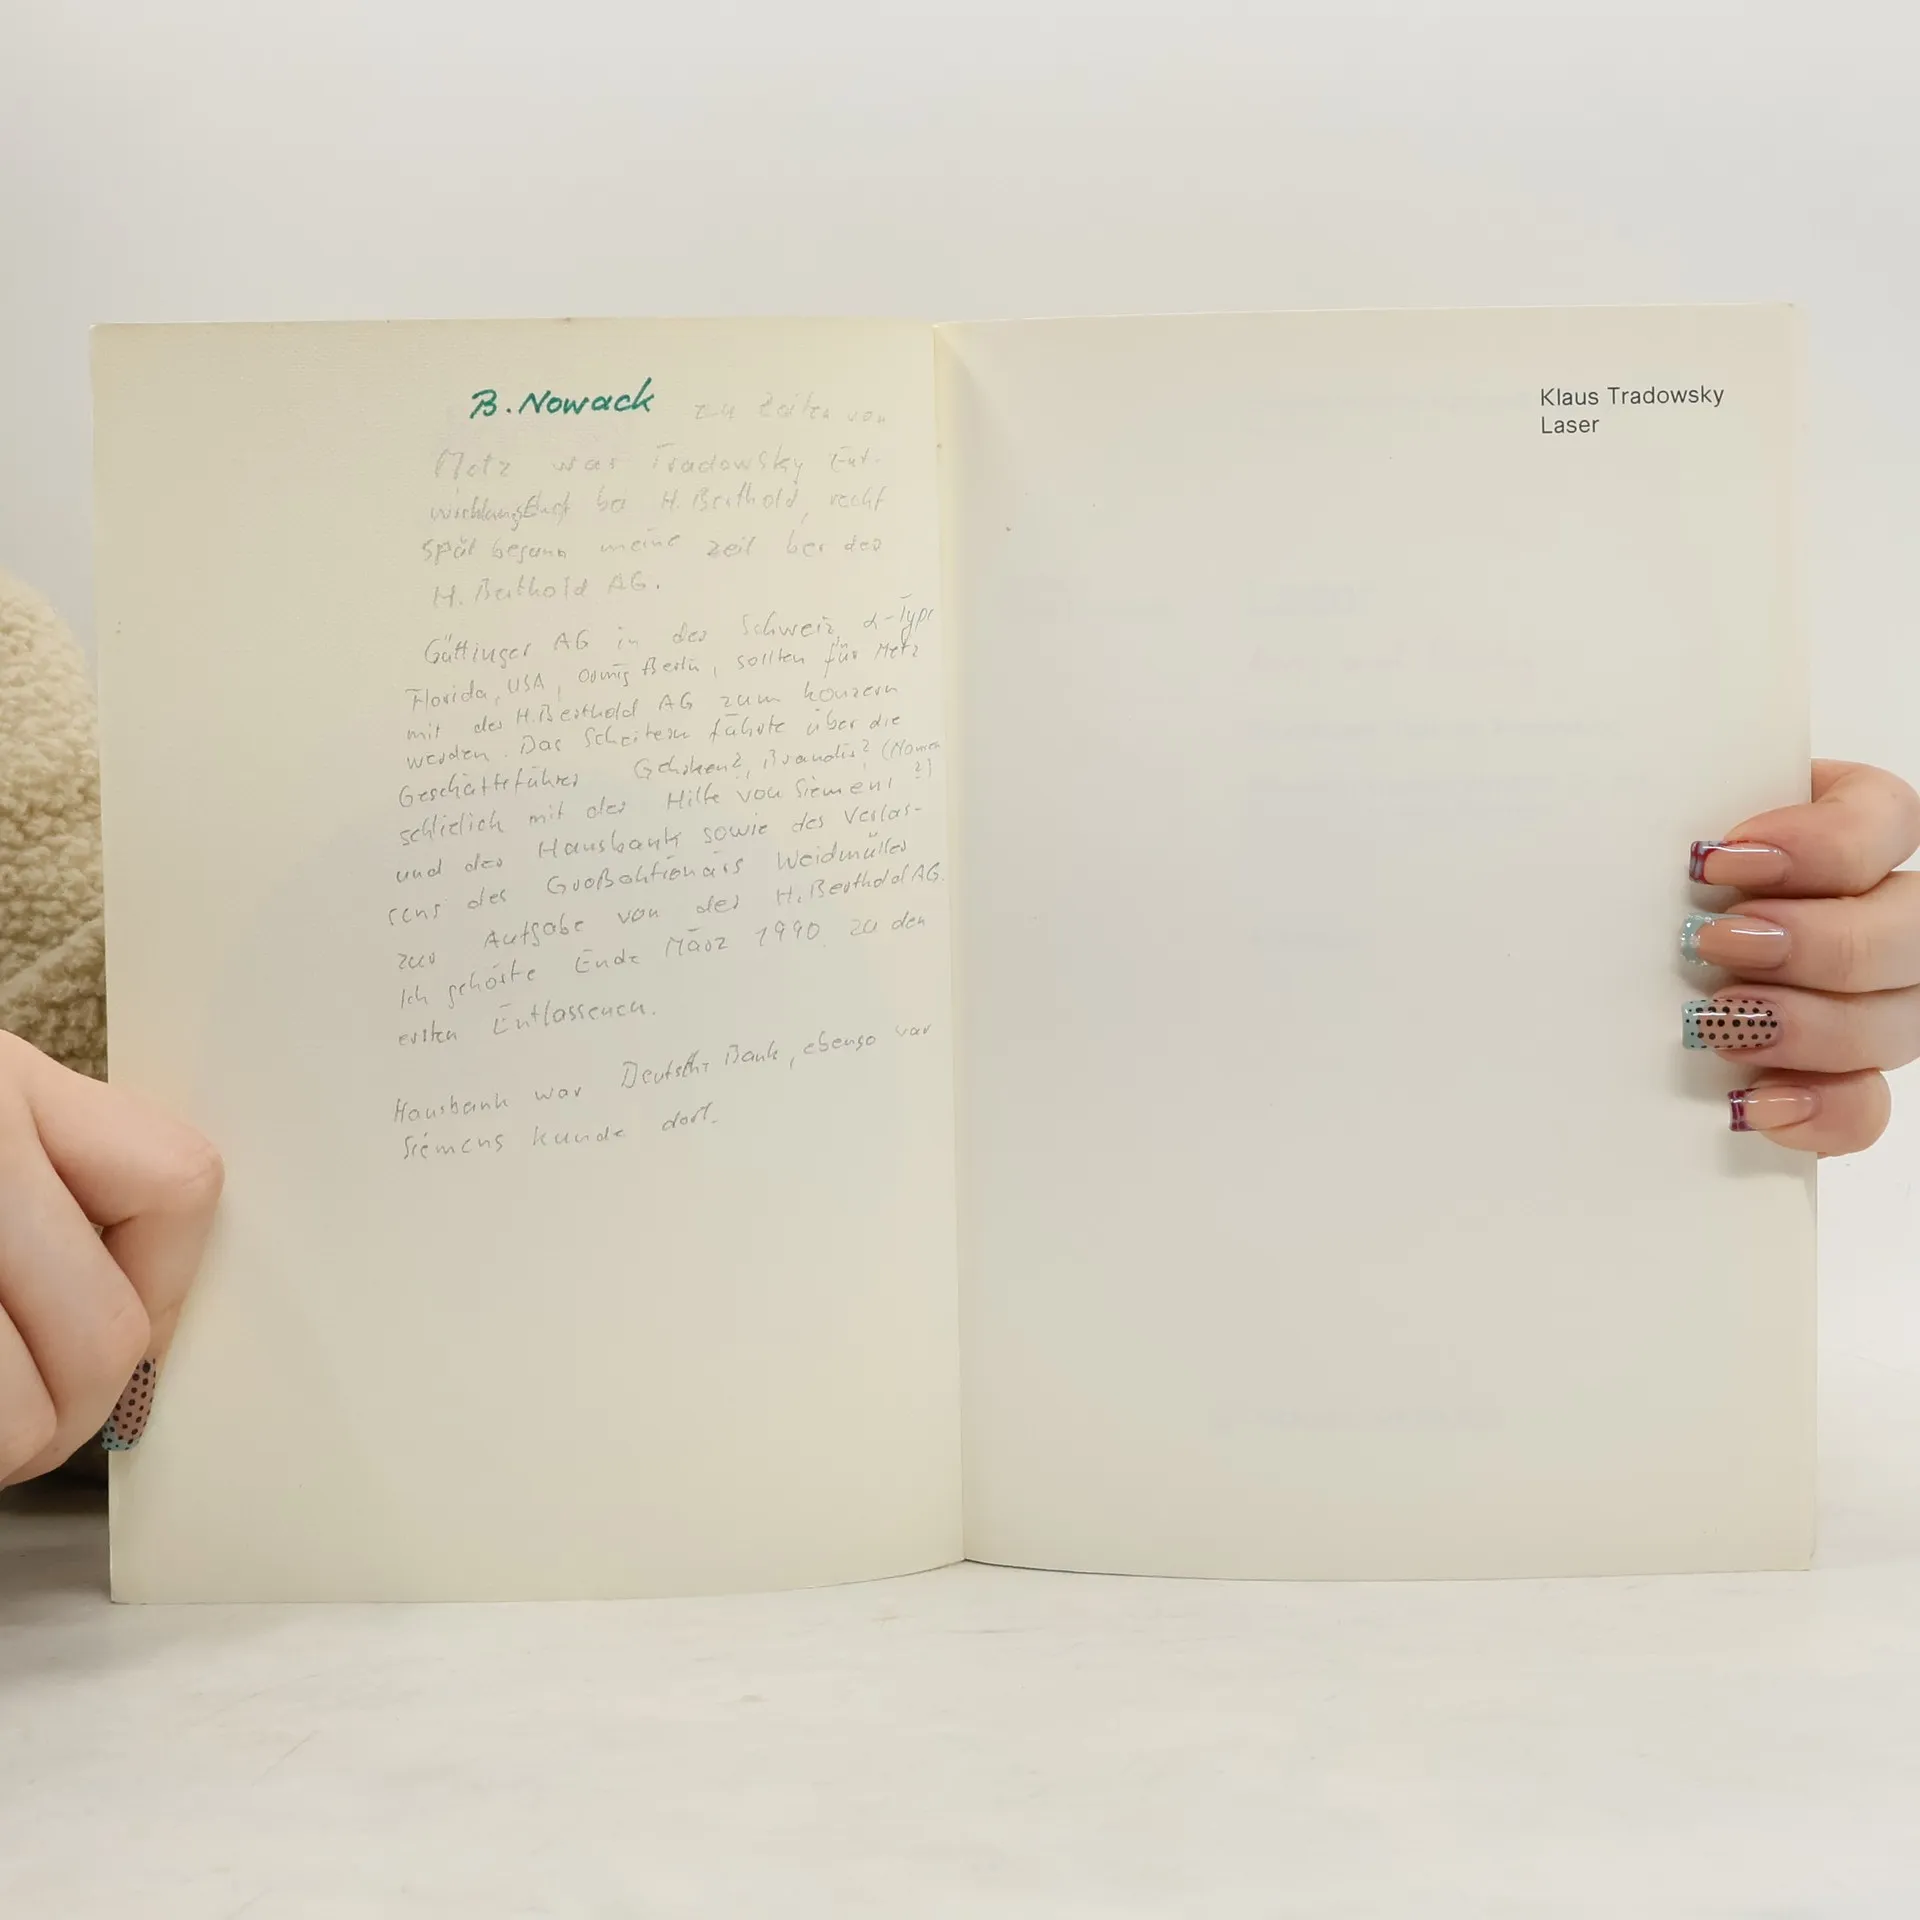 B. Nowack zu Zeiten von
Metz war Tradowsky Ent-
wicklungschef bei H. Berthold, recht
spät begann meine Zeit bei der
H. Berthold AG.
Güttinger AG in der Schweiz, α-Type
Florida, USA, Berlin, sollten für Metz
mit der H. Berthold AG zum Konzern
werden. Das Scheitern führte über die
Geschäftsführer Brandis? (Namen
schließlich mit der Hilfe von Siemens ?)
und der Hausbank sowie des Verlas-
sens des Großaktionärs Weidmüller
zur Aufgabe von der H. Berthold AG.
Ich gehörte Ende März 1990 zu den
ersten Entlassenen.
Hausbank war Deutsche Bank, ebenso war
Siemens Kunde dort.
Klaus Tradowsky
Laser